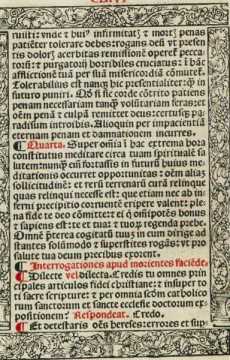 ruisti: vnde z huiꝰ infirmitatẽ z mortẽ penas
patiẽter tolerare debes: rogans deũ vt presen
tis doloris acerbitas remissionẽ operet̃ pecca
torũ: z purgatorij horribiles cruciatus: z hãc
afflictionẽ tuã per suã misericordiã cõmutet.
Tolerabilius est nãqꝫ hic presentialiter qꝫ in
futuro puniri. Qꝫ si sic corde cõtrito patiens
penam necessariam tanqꝫ voluntariam feras:
oẽm penã z culpã remittet deus: certusqꝫ pa
radisum introibis. Alioquin per impacientiã
eternam penam et damnationem incurres.
¶ Quarta. Super oĩa ĩ hac extrema hora
constitutus meditare circa tuam spiritualẽ sa
lutem: nunqꝫ eĩ fortassis in futurũ huiꝰ me
ditationis occurret opportunitas: oẽm alias
sollicitudinẽ: et rerũ terrenarũ curã relinque
quas relinqui necesse est: que etiam nec ab in
ferni precipitio corruentẽ eripere valent: ple
na fide te deo cõmitte: et ĩ q̃ oĩpotẽs bonus
z sapiens est: te et tuaꝫ z tuoꝝ regenda prebe.
Omnẽ preterea cogitatũ tuũ in eum dirige: ad
stantes solũmodo z superstites rogãs: vt pro
salute tua deum precibus exorent.
¶ Interrogationes apud morientes faciẽde.
¶ Dilecte vel dilecta. Credis tu omnes prin
cipales articulos fidei christiane: z insuper to
tã sacrã scripturã: z per omnia scḋm catholico
rum sanctorum et sancte ecclesie doctorum ex
positionem? Respondeat. Credo.
¶ Et detestaris oẽs hereses: errores et sup-